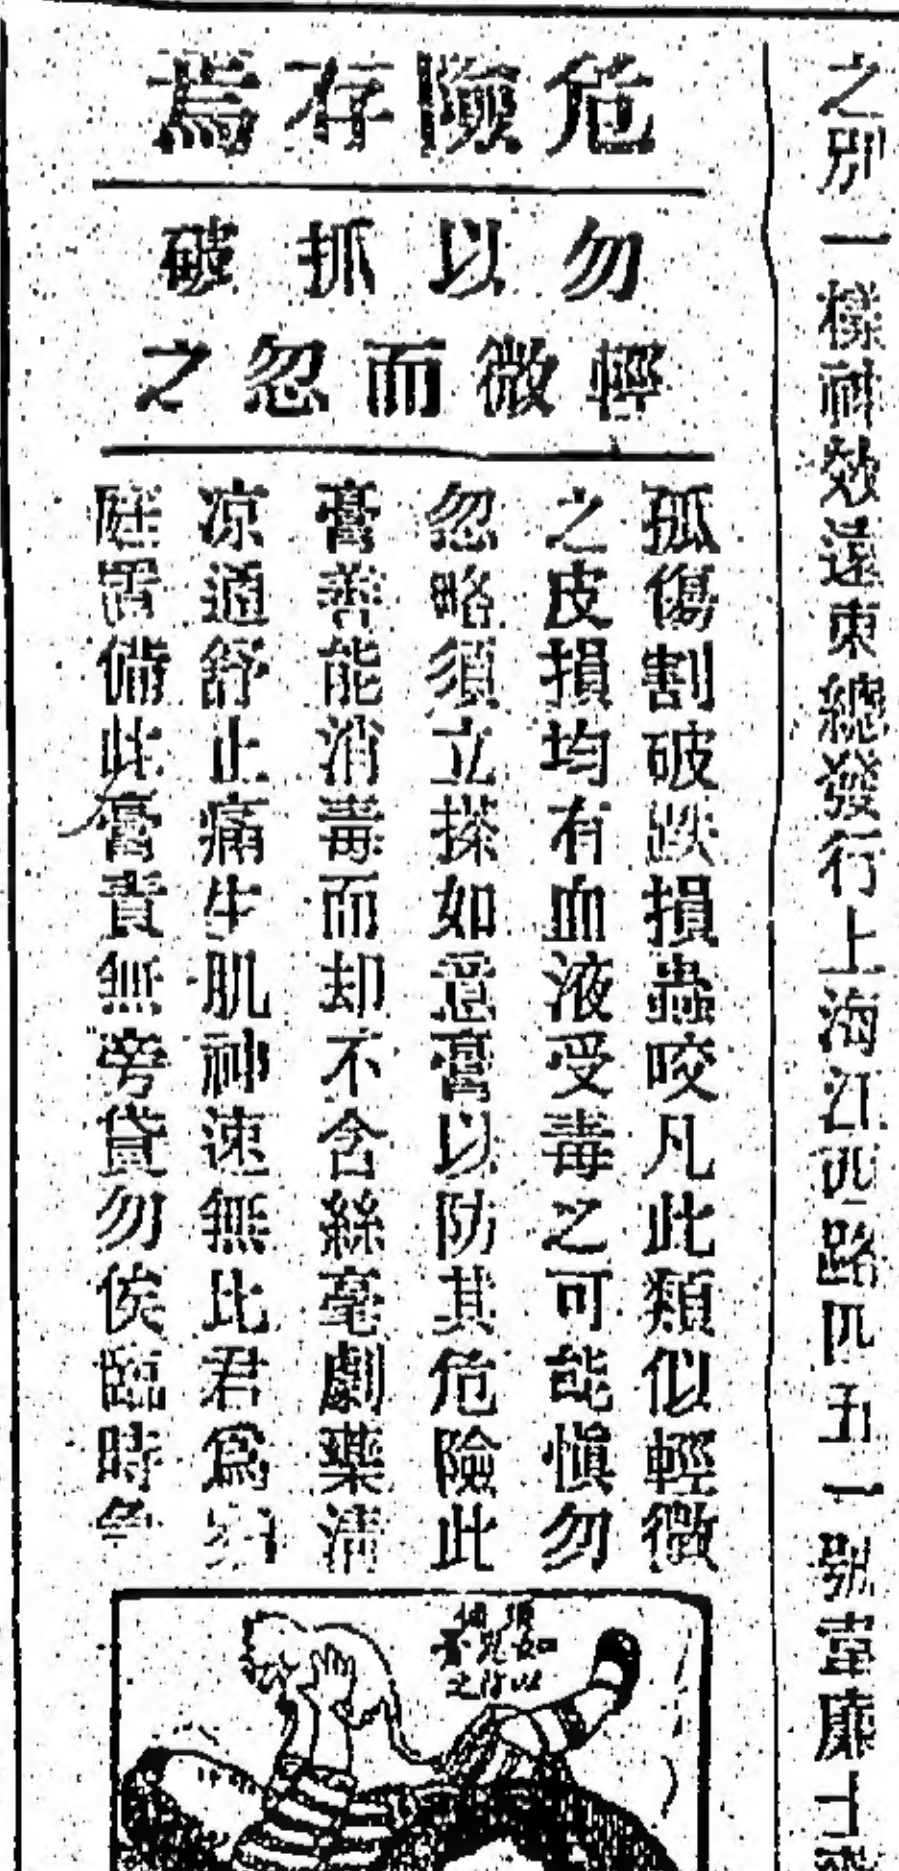 之別一樣神效遠東總發行上海江西路四五一號韋廉士
危險存焉
勿以抓破
輕微而忽之
孤傷割破跌損蟲咬凡此類似輕微
之皮損均有血液受毒之可能慎勿
忽略須立搽如意膏以防其危險此
膏善能消毒而却不含絲毫劇藥清
凉適舒止痛生肌神速無比君爲
庭需備此膏責無旁貸勿俟臨時